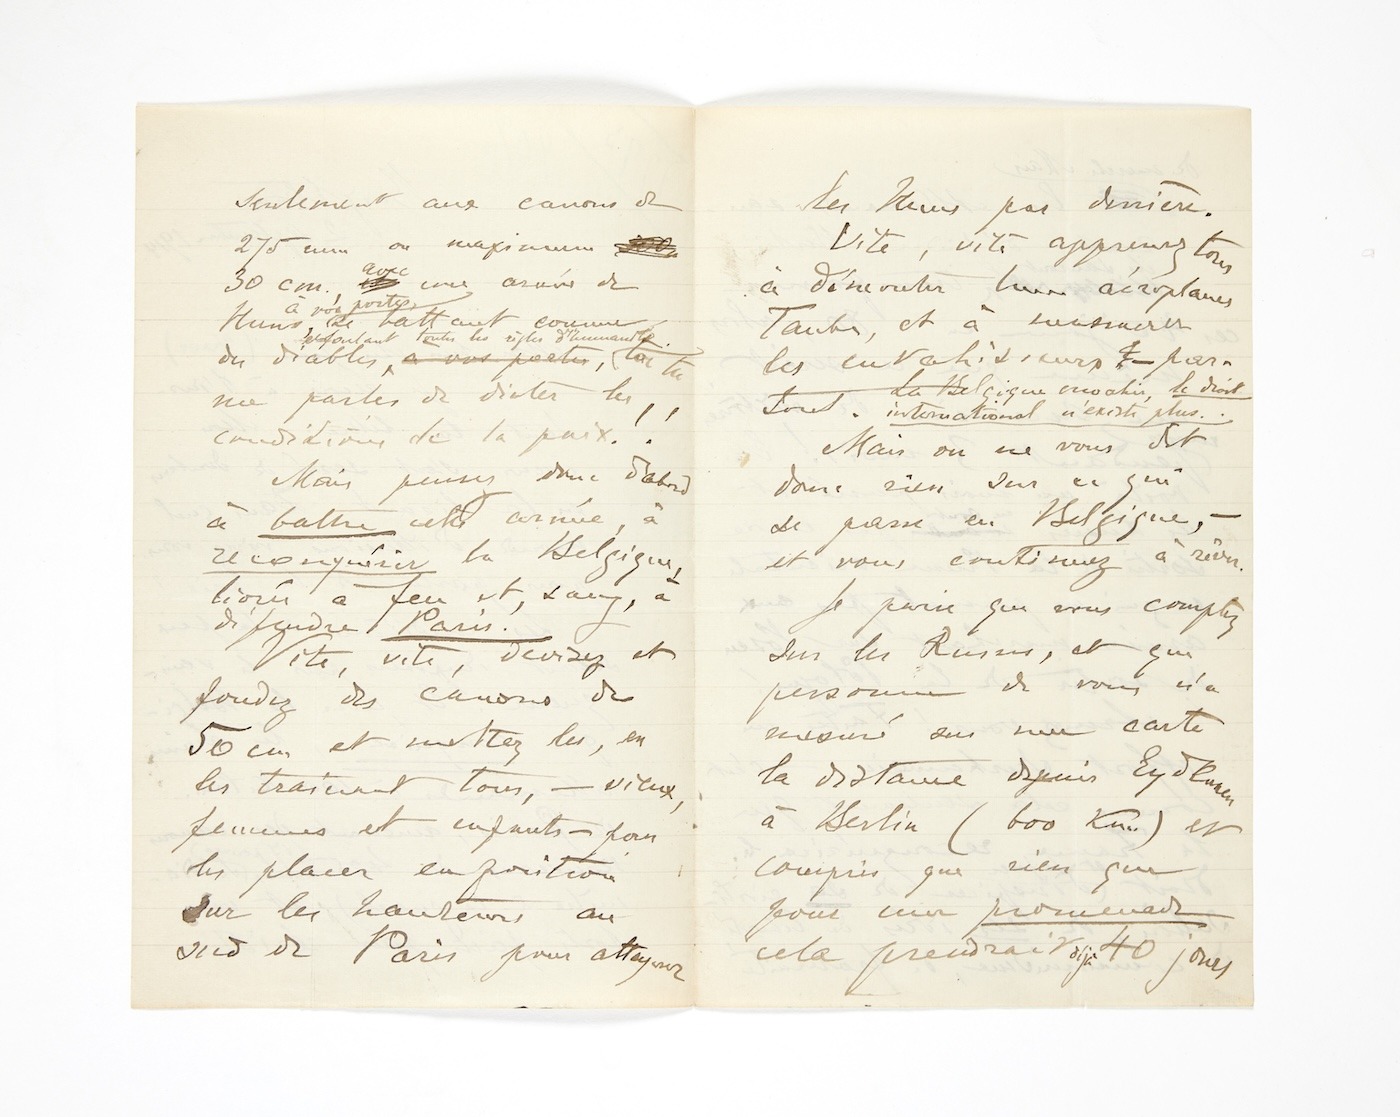 seulement aux canons de
275 mm ou maximum
30 cm. avec une armée de
Huns, à vos portes, se battant comme
refoulant toutes les règles d'humanité.
des diables, a vos portes, tu
me parles de dicter les
conditions de la paix!!!
Mais pensez donc d'abord
à battre cette armée, à
reconquérir la Belgique,
livrée à feu et, sang, à
défendre Paris.
Vite, vite, devisez et
fondez des canons de
50 cm et mettez les, en
les traînant tous, – vieux,
femmes et enfants – pour
les placer en position
sur les hauteurs au
sud de Paris pour attaquer
les Huns par derrière.
Vite, vite apprenez tous
à dérouter leurs aéroplanes
Taube, et à massacrer
les envahisseurs par-
tout. La Belgique envahie, le droit
international n'existe plus.
Mais on ne vous dit
donc rien sur ce qui
se passe en Belgique, –
et vous continuez à rêver.
Je parie que vous comptez
sur les Russes, et que
personne de vous n'a
mesuré sur une carte
la distance depuis Eydkunen
à Berlin (600 Km.) et
compris que rien que
pour une promenade
cela prendrait déjà 40 jours